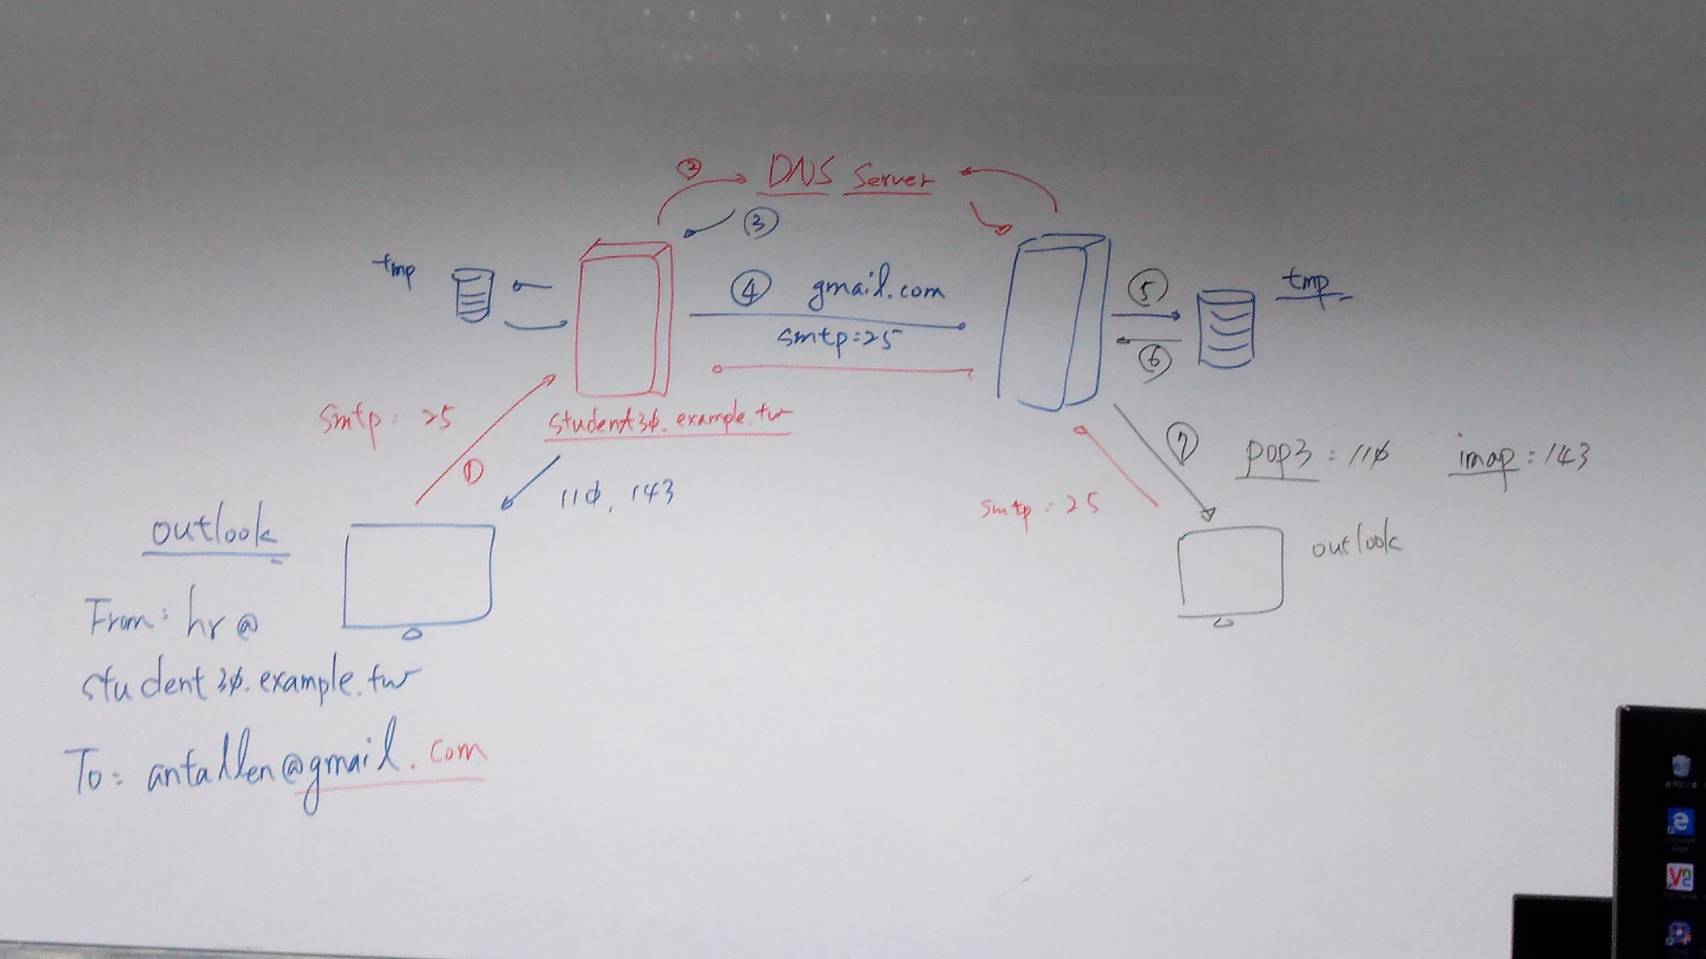 ② DNS Server
③
tmp
④ gmail.com
smtp:25
⑤
⑥
tmp
smtp: 25
①
student30.example.tw
110, 143
⑦
pop3:110 imap:143
smtp:25
outlook
outlook
From: hr@
student30.example.tw
To: antallen@gmail.com